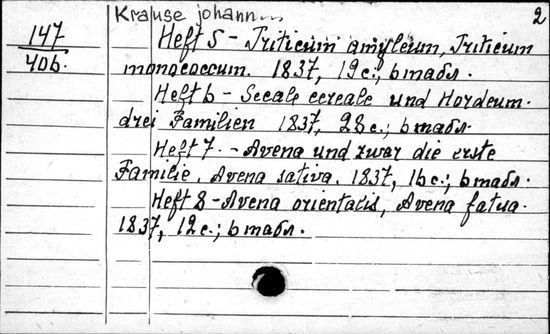 Krause johann 2
147
406.
Heft 5 - Triticum amyleum, Triticum
monococcum. 1837, 19 с.; 6 табл.
Heft 6 - Secale cereale und Hordeum.
drei Familien 1837, 28 с.; 6 табл.
Heft 7. - Avena und zwar die erste
Familie. Avena sativa. 1837, 16 с.; 6 табл.
Heft 8 - Avena orientalis, Avena fatua.
1837, 12 с.; 6 табл.